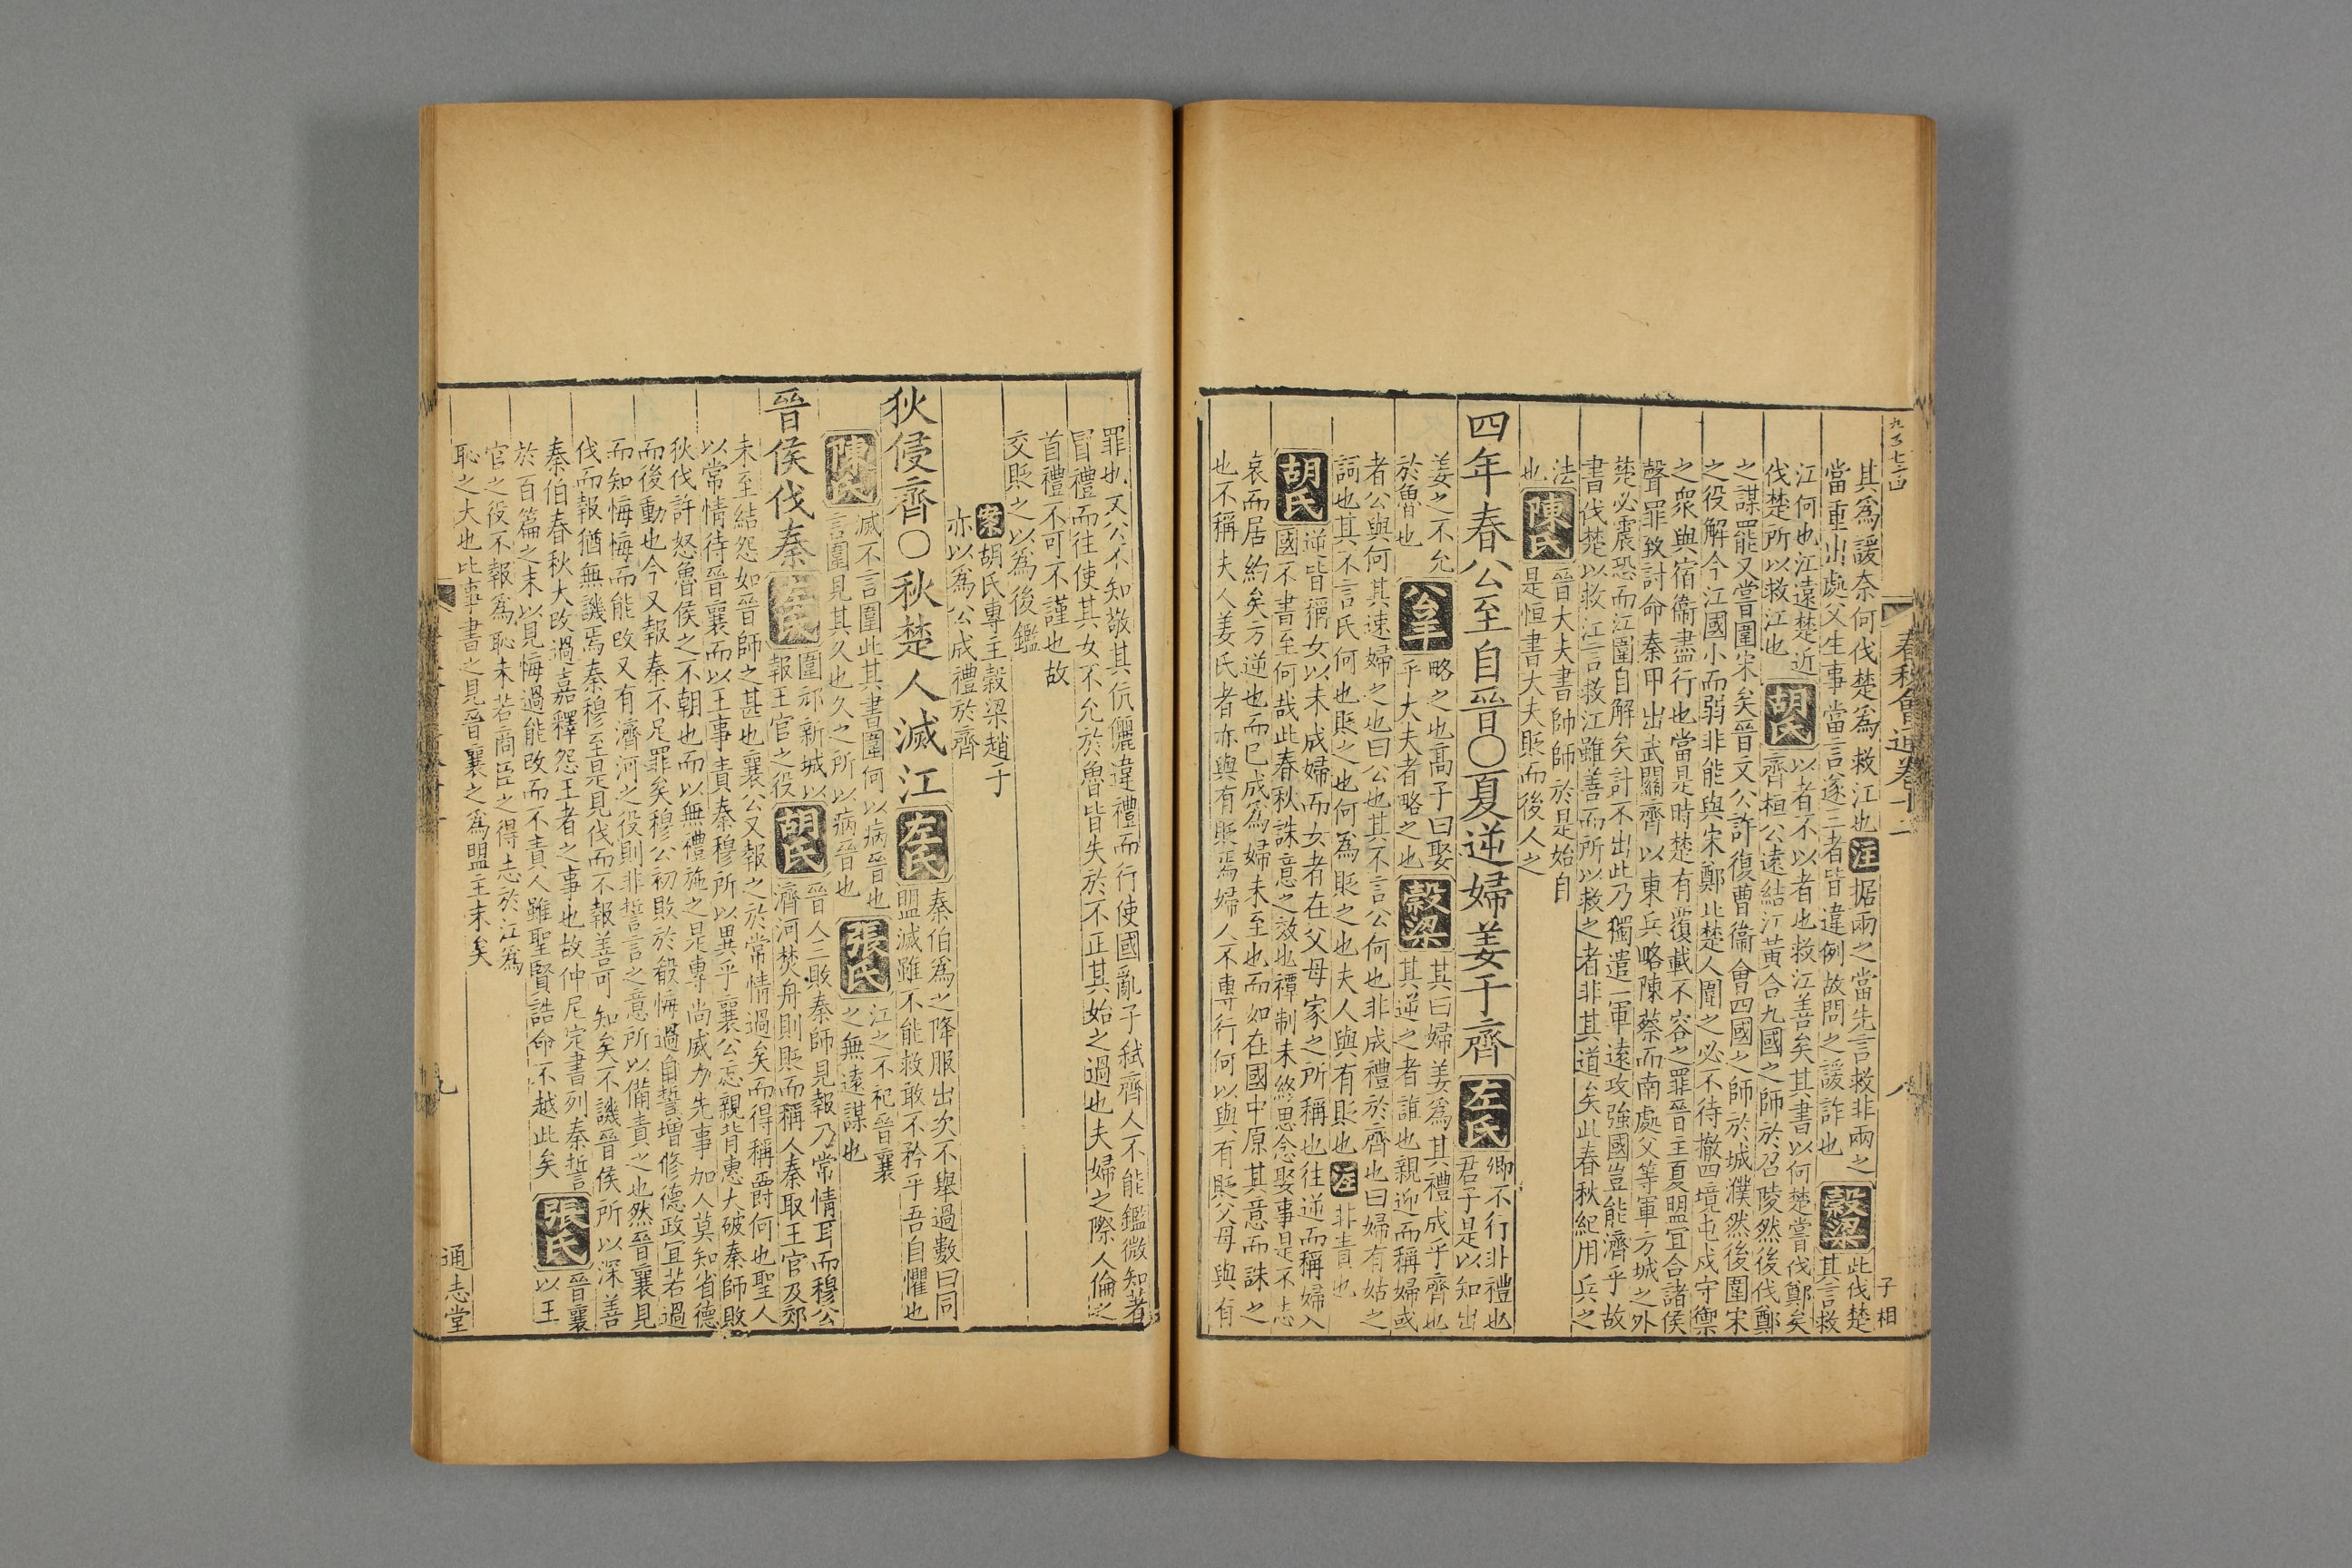 其爲諼奈何伐楚爲救江也注据兩之當先言救非兩之
當重出處父生事當言遂三者皆違例故問之諼詐也穀梁此伐楚其言救
江何也江遠楚近
伐楚所以救江也胡氏以者不以者也救江善矣其書以何楚嘗伐鄭矣
齊桓公遠結江黄合九國之師於召陵然後伐鄭
之謀罷又嘗圍宋矣晉文公許復曹衞會四國之師於城濮然後圍宋
之役解今江國小而弱非能與宋鄭比楚人圍之必不待撤四境屯戍守禦
之衆與宿衞盡行也當是時楚有覆載不容之罪晉主夏盟宜合諸侯
聲罪致討命秦甲出武關齊以東兵略陳蔡而南處父等軍方城之外
楚必震恐而江圍自解矣計不出此乃獨遣一軍遠攻強國豈能濟乎故
書伐楚以救江言救江雖善而所以救之者非其道矣此春秋紀用兵之
法
也陳氏晉大夫書帥師於是始自
是恒書大夫貶而後人之
四年春公至自晉〇夏逆婦姜于齊左氏卿不行非禮也
君子是以知出
姜之不允
於魯也公羊略之也高子曰娶
乎大夫者略之也穀梁其曰婦姜爲其禮成乎齊也
其逆之者誰也親迎而稱婦或
者公與何其速婦之也曰公也其不言公何也非成禮於齊也曰婦有姑之
詞也其不言氏何也貶之也何爲貶之也夫人與有貶也左非責也
胡氏逆皆稱女以未成婦而女者在父母家之所稱也往逆而稱婦入
國不書至何哉此春秋誅意之效也禫制未終思念娶事是不志
哀而居約矣方逆也而已成爲婦未至也而如在國中原其意而誅之
也不稱夫人姜氏者亦與有貶焉婦人不專行何以與有貶父母與有
春秋會通卷十二
八
子相
罪也文公不知敬其伉儷違禮而行使國亂子弑齊人不能鑑微知著
冒禮而往使其女不允於魯皆失於不正其始之過也夫婦之際人倫之
首禮不可不謹也故
交貶之以爲後鑑
案胡氏專主穀梁趙子
亦以爲公成禮於齊
狄侵齊〇秋楚人滅江左氏秦伯爲之降服出次不舉過數曰同
盟滅雖不能救敢不矜乎吾自懼也
陳氏滅不言圍此其書圍何以病晉也
言圍見其久也久之所以病晉也張氏江之不祀晉襄
之無遠謀也
晉侯伐秦左氏圍邧新城以
報王官之役胡氏晉人三敗秦師見報乃常情耳而穆公
濟河焚舟則貶而稱人秦取王官及郊
未至結怨如晉師之甚也襄公又報之於常情過矣而得稱爵何也聖人
以常情待晉襄而以王事責秦穆所以異乎襄公忘親背惠大破秦師敗
狄伐許怒魯侯之不朝也而以無禮施之是專尚威力先事加人莫知省德
而後動也今又報秦不足罪矣穆公初敗於殽悔過自誓增修德政宜若過
而知悔悔而能改又有濟河之役則非誓言之意所以備責之也然晉襄見
伐而報猶無譏焉秦穆至是見伐而不報善可知矣不譏晉侯所以深善
秦伯春秋大改過嘉釋怨王者之事也故仲尼定書列秦誓
於百篇之末以見悔過能改而不責人雖聖賢誥命不越此矣張氏晉襄
以王
官之役不報爲恥未若商臣之得志於江爲
恥之大也比事書之見晉襄之爲盟主末矣
九
通志堂